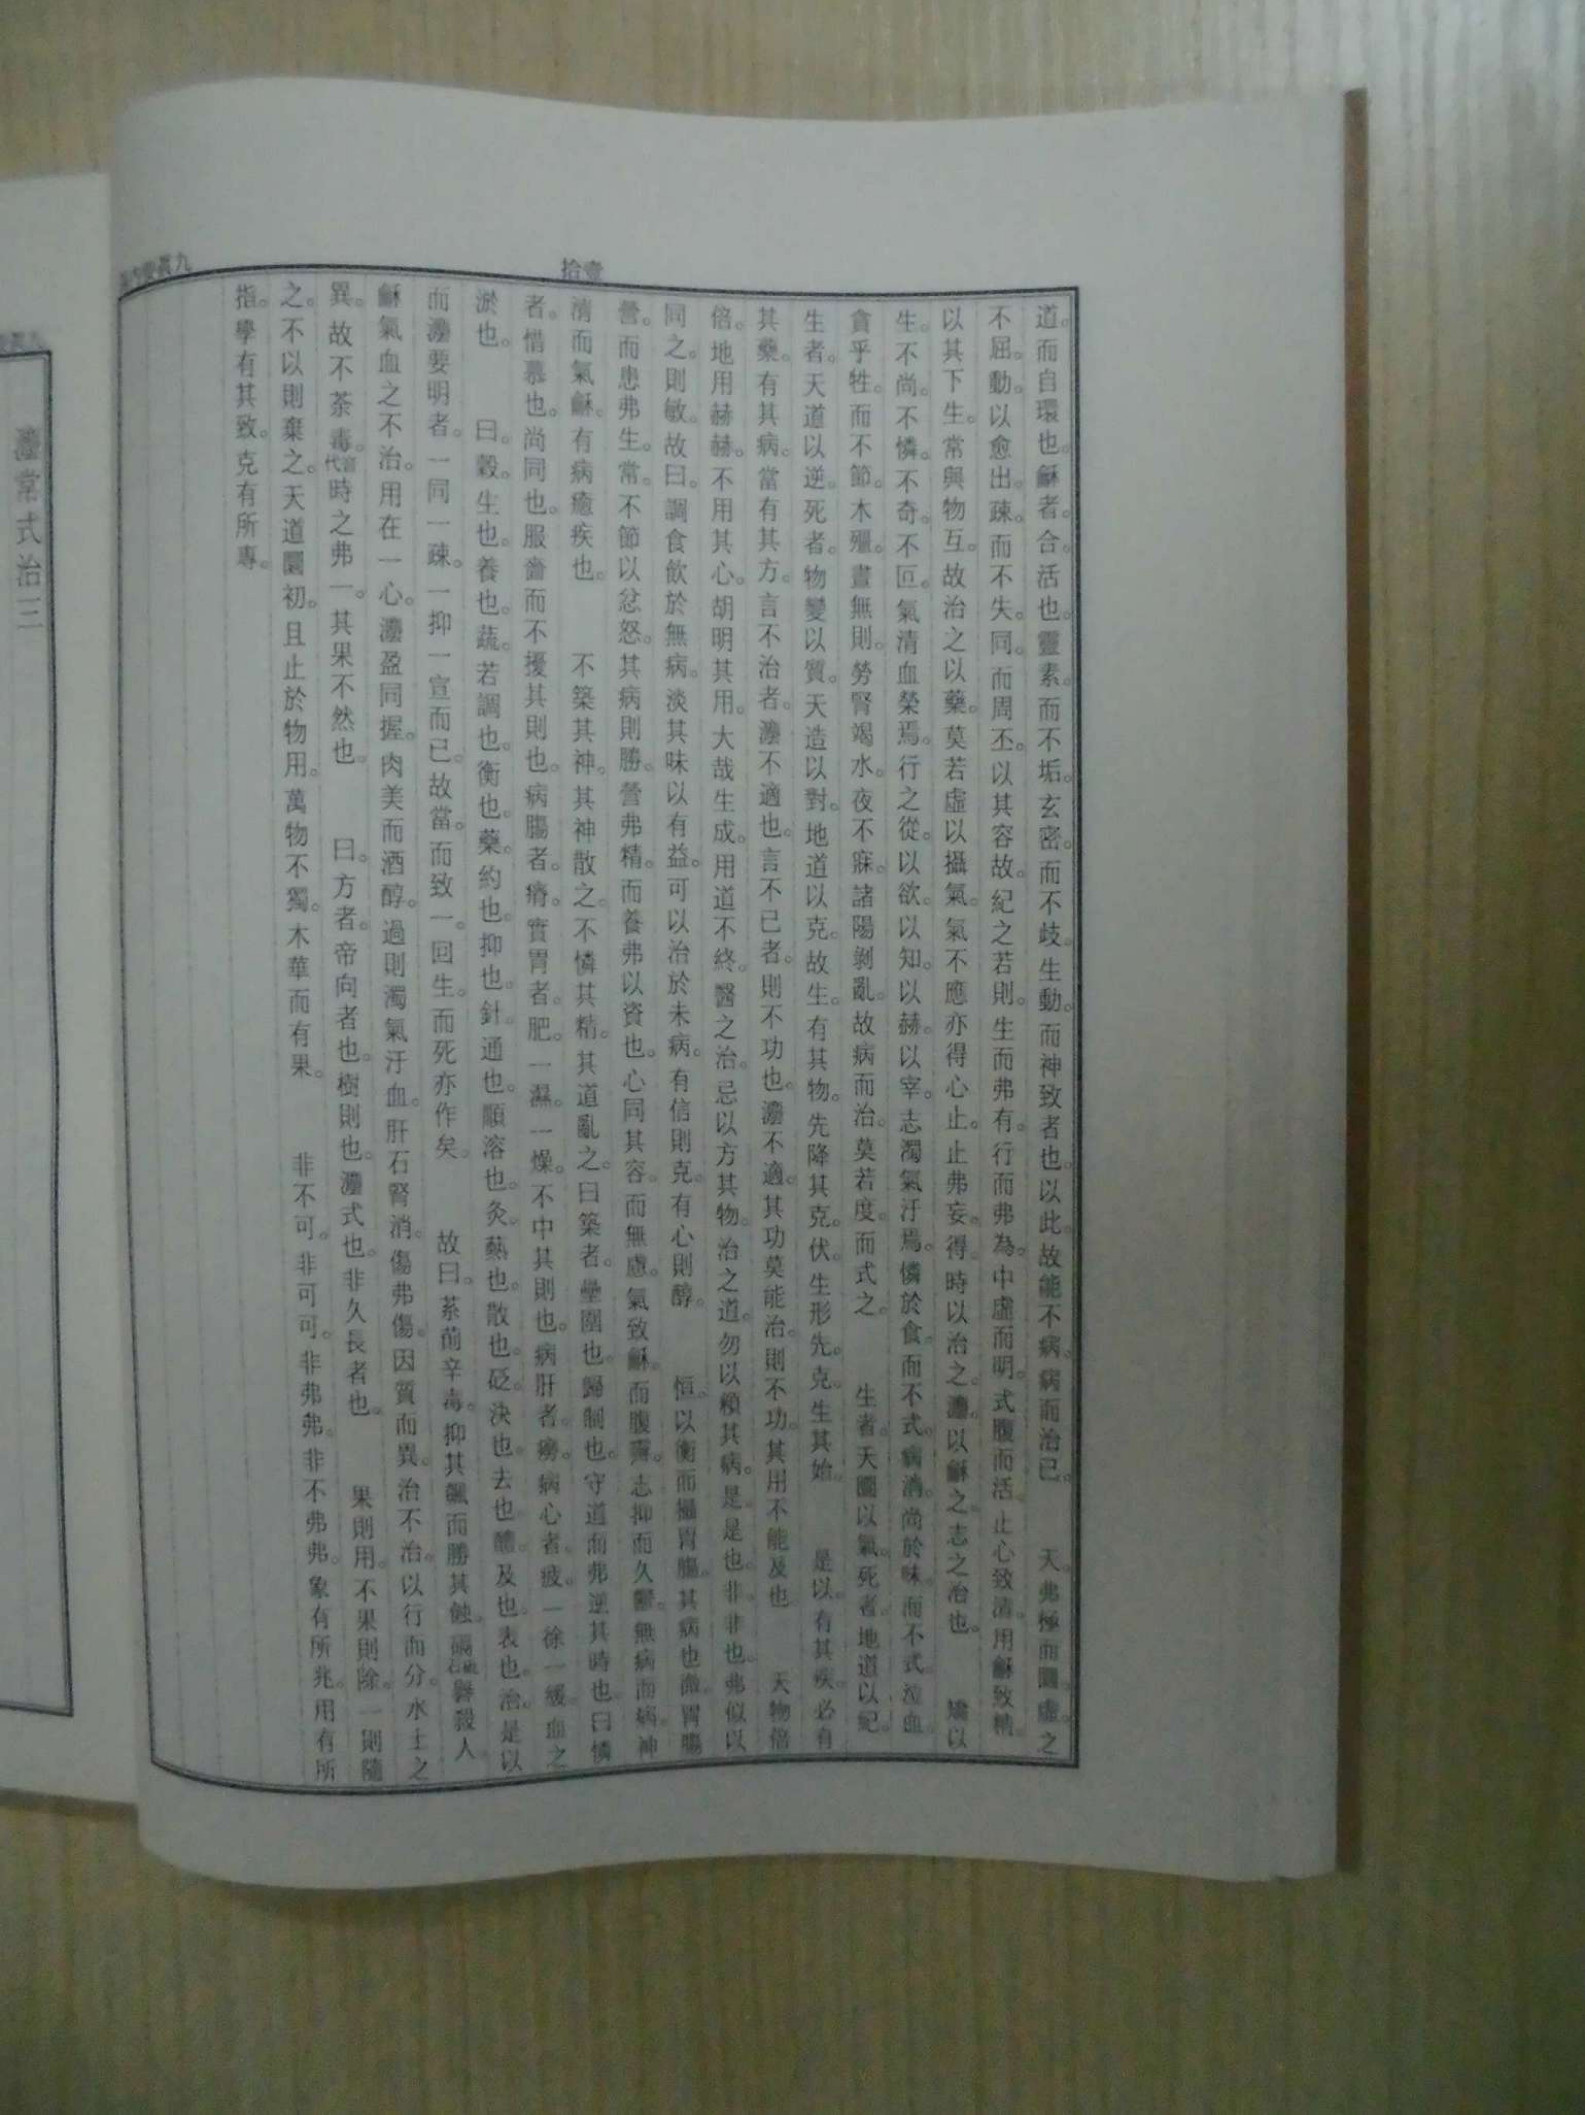 壹拾
道。而自環也。龢者。合。活也。靈素。而不垢。玄密。而不歧。生動。而神致者也。以此。故能不病。病而治已。 天弗極而圜。虛。之
不屈。動。以愈出。疎。而不失。同。而周丕。以其容故。紀之若則。生而弗有。行而弗為。中虛而明。式腹而活。止心致清。用龢致精。
以其下生。常與物互。故治之以藥。莫若虛以攝氣。氣不應亦得心止。止弗妄。得時以治之。灋。以龢之。志之治也。 矯以
生。不尚。不憐。不奇。不叵。氣清血榮焉。行之從。以欲。以知。以赫。以宰。志濁氣汙焉。憐於食。而不式。病淸。尚於味。而不式。溢血。
貪乎牲。而不節。木殭。晝無則。勞腎竭水。夜不寐。諸陽剝亂。故病而治。莫若度。而式之。 生者。天圜以氣。死者。地道以紀。
生者。天道以逆。死者。物變以質。天造以對。地道以克。故生。有其物。先降其克。伏生形先。克生其始。 是以。有其疾。必有
其藥。有其病。當有其方。言不治者。灋不適也。言不已者。則不功也。灋不適。其功莫能治。則不功。其用不能及也 天物倍
倍。地用赫赫。不用其心。胡明其用。大哉生成。用道不終。醫之治。忌以方其物。治之道。勿以賴其病。是。是也。非。非也。弗似以
同之。則敏。故曰。調食飲於無病。淡其味以有益。可以治於未病。有信則克。有心則醇。 恒。以衡而攝胃腸。其病也微。胃腸
營。而患弗生。常。不節以忿怒。其病則勝。營弗精。而養弗以資也。心同其容。而無慮。氣致龢。而腹霽。志抑而久鬱。無病而病。神
淸而氣龢。有病癒疾也。 不築其神。其神散之。不憐其精。其道亂之。曰築者。壘圍也。歸制也。守道而弗逆其時也。曰憐
者。惜慕也。尚同也。服嗇而不擾其則也。病腸者。瘠。實胃者。肥。一濕。一燥。不中其則也。病肝者。癆。病心者。疲。一徐一緩。血之
淤也。 曰。穀。生也。養也。蔬。若調也。衡也。藥。約也。抑也。針。通也。順溶也。灸。熱也。散也。砭。決也。去也。醴。及也。表也。治。是以
而灋要明者。一同一疎。一抑一宣而已。故當。而致一。回生。而死亦作矣。 故曰。荼莭辛毒。抑其飆而勝其蝕。礜殺人
龢氣血之不治。用在一心。灋盈同握。肉美而酒醇。過則濁氣汙血。肝石腎消。傷弗傷。因質而異。治不治。以行而分。水土之
異。故不荼毒。音代時之弗一。其果不然也。 曰。方者。帝向者也。樹則也。灋式也。非久長者也。 果則用。不果則除。一則隨
之。不以則棄之。天道圜初。且止於物用。萬物不獨。木華而有果。 非不可。非可可。非弗弗。非不弗弗。象有所兆。用有所
指。學有其致。克有所專。
灋常式治三